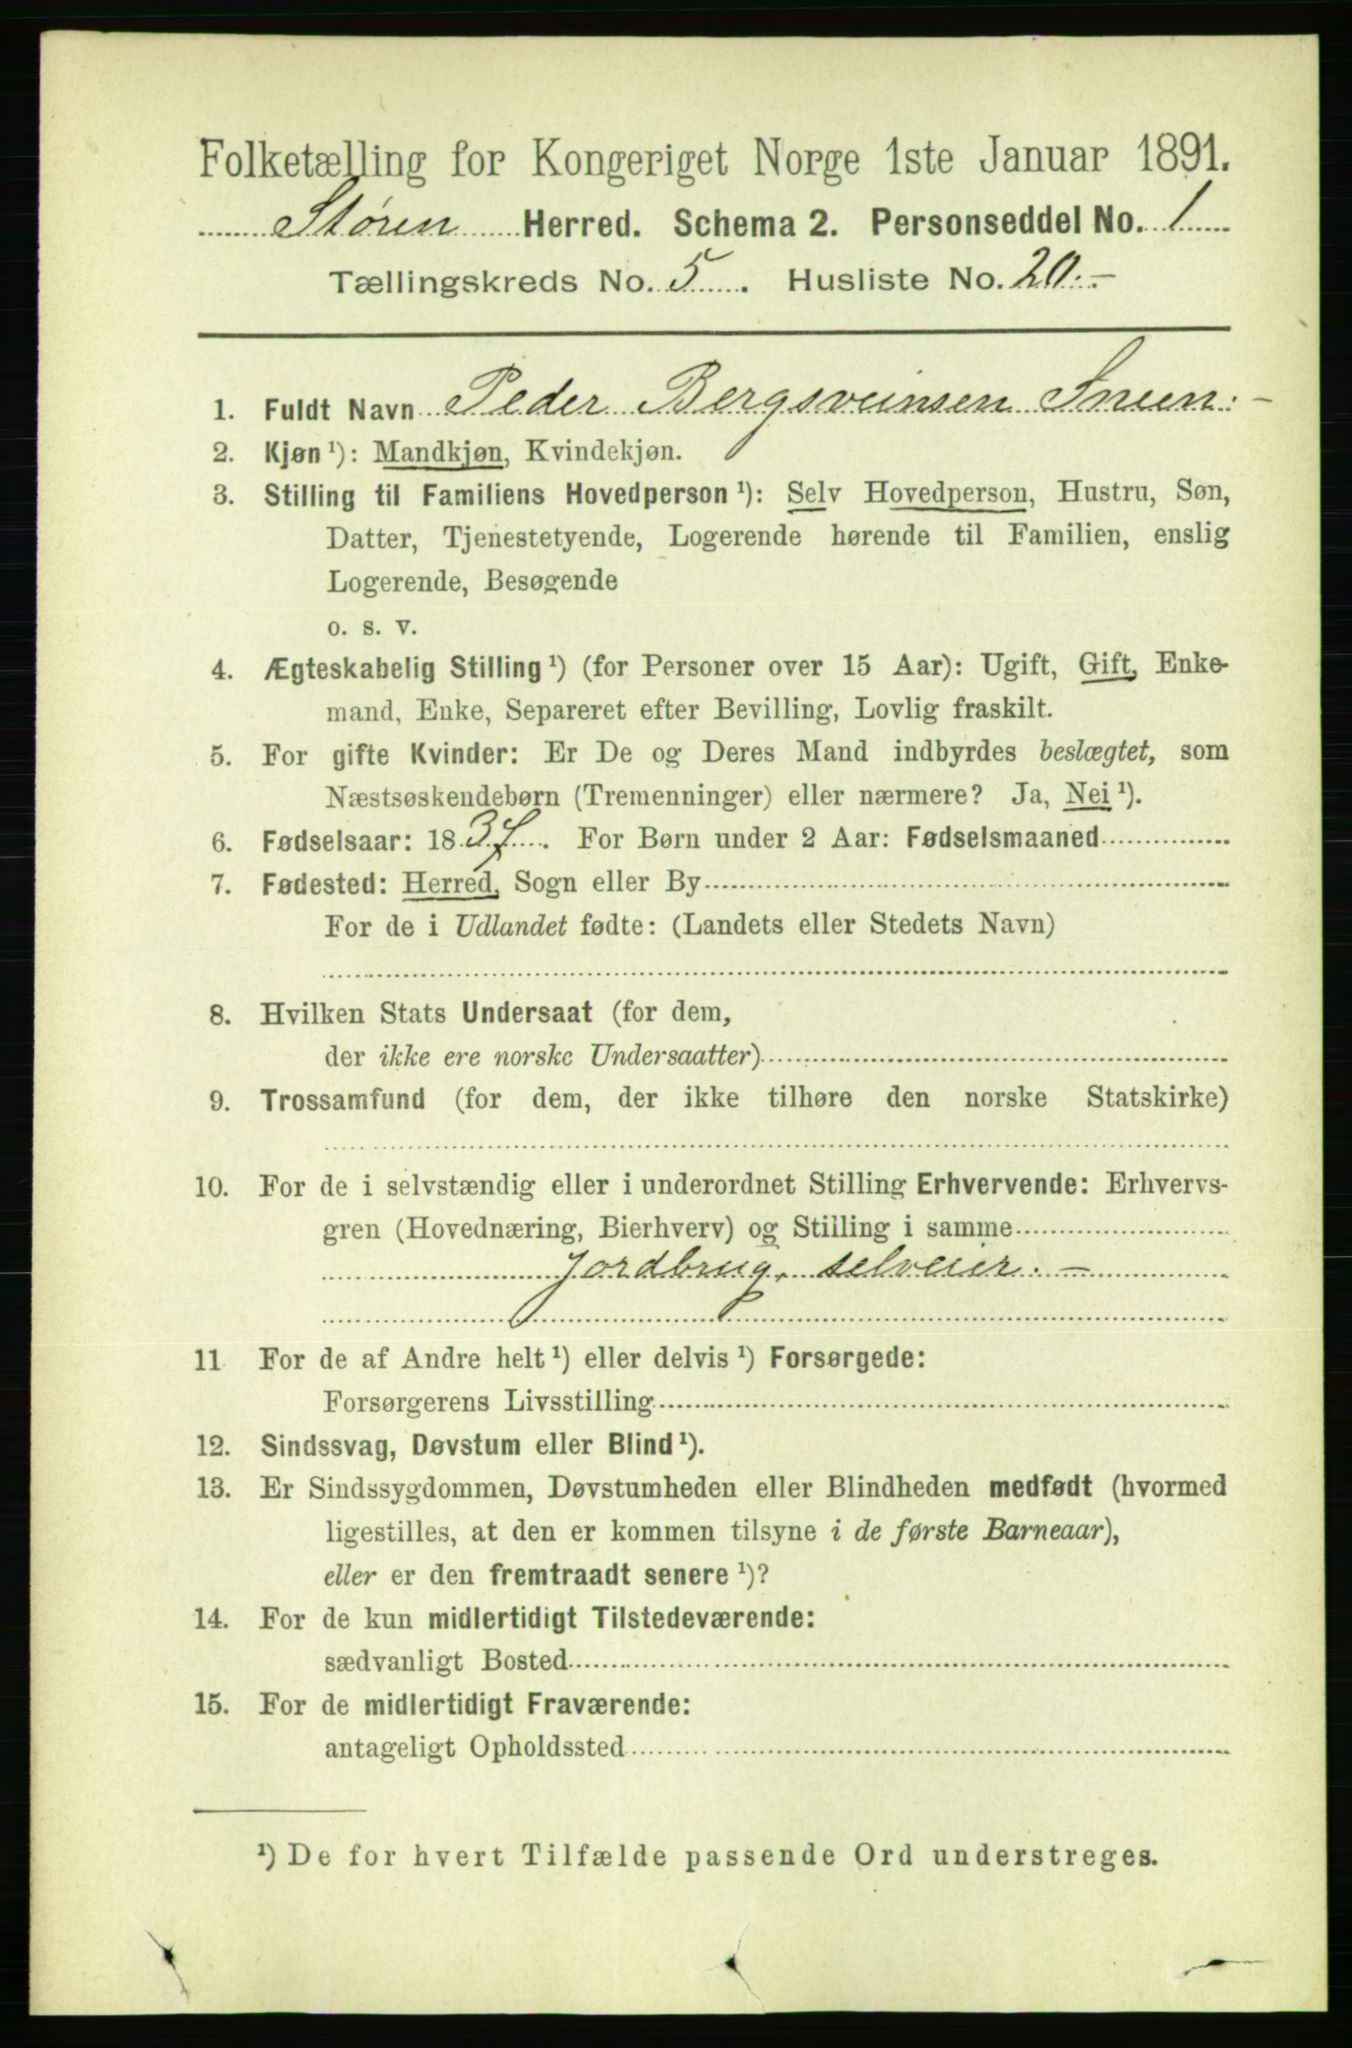 Folketælling for Kongeriget Norge 1ste Januar 1891.
Støren Herred. Schema 2. Personseddel No. 1
Tællingskreds No. 5. Husliste No. 20.-
1. Fuldt Navn Peder Bergsveinsen Sneen. -
2. Kjøn ¹): Mandkjøn, Kvindekjøn.
3. Stilling til Familiens Hovedperson ¹): Selv Hovedperson, Hustru, Søn,
Datter, Tjenestetyende, Logerende hørende til Familien, enslig
Logerende, Besøgende
o. s. v.
4. Ægteskabelig Stilling ¹) (for Personer over 15 Aar): Ugift, Gift, Enke-
mand, Enke, Separeret efter Bevilling, Lovlig fraskilt.
5. For gifte Kvinder: Er De og Deres Mand indbyrdes beslægtet, som
Næstsøskendebørn (Tremenninger) eller nærmere? Ja, Nei ¹).
6. Fødselsaar: 1837. For Børn under 2 Aar: Fødselsmaaned
7. Fødested: Herred, Sogn eller By
For de i Udlandet fødte: (Landets eller Stedets Navn)
8. Hvilken Stats Undersaat (for dem,
der ikke ere norske Undersaatter)
9. Trossamfund (for dem, der ikke tilhøre den norske Statskirke)
10. For de i selvstændig eller i underordnet Stilling Erhvervende: Erhvervs-
gren (Hovednæring, Bierhverv) og Stilling i samme
Jordbrug, selveier. -
11 For de af Andre helt ¹) eller delvis ¹) Forsørgede:
Forsørgerens Livsstilling
12. Sindssvag, Døvstum eller Blind ¹).
13. Er Sindssygdommen, Døvstumheden eller Blindheden medfødt (hvormed
ligestilles, at den er kommen tilsyne i de første Barneaar),
eller er den fremtraadt senere ¹)?
14. For de kun midlertidigt Tilstedeværende:
sædvanligt Bosted
15. For de midlertidigt Fraværende:
antageligt Opholdssted
¹) De for hvert Tilfælde passende Ord understreges.